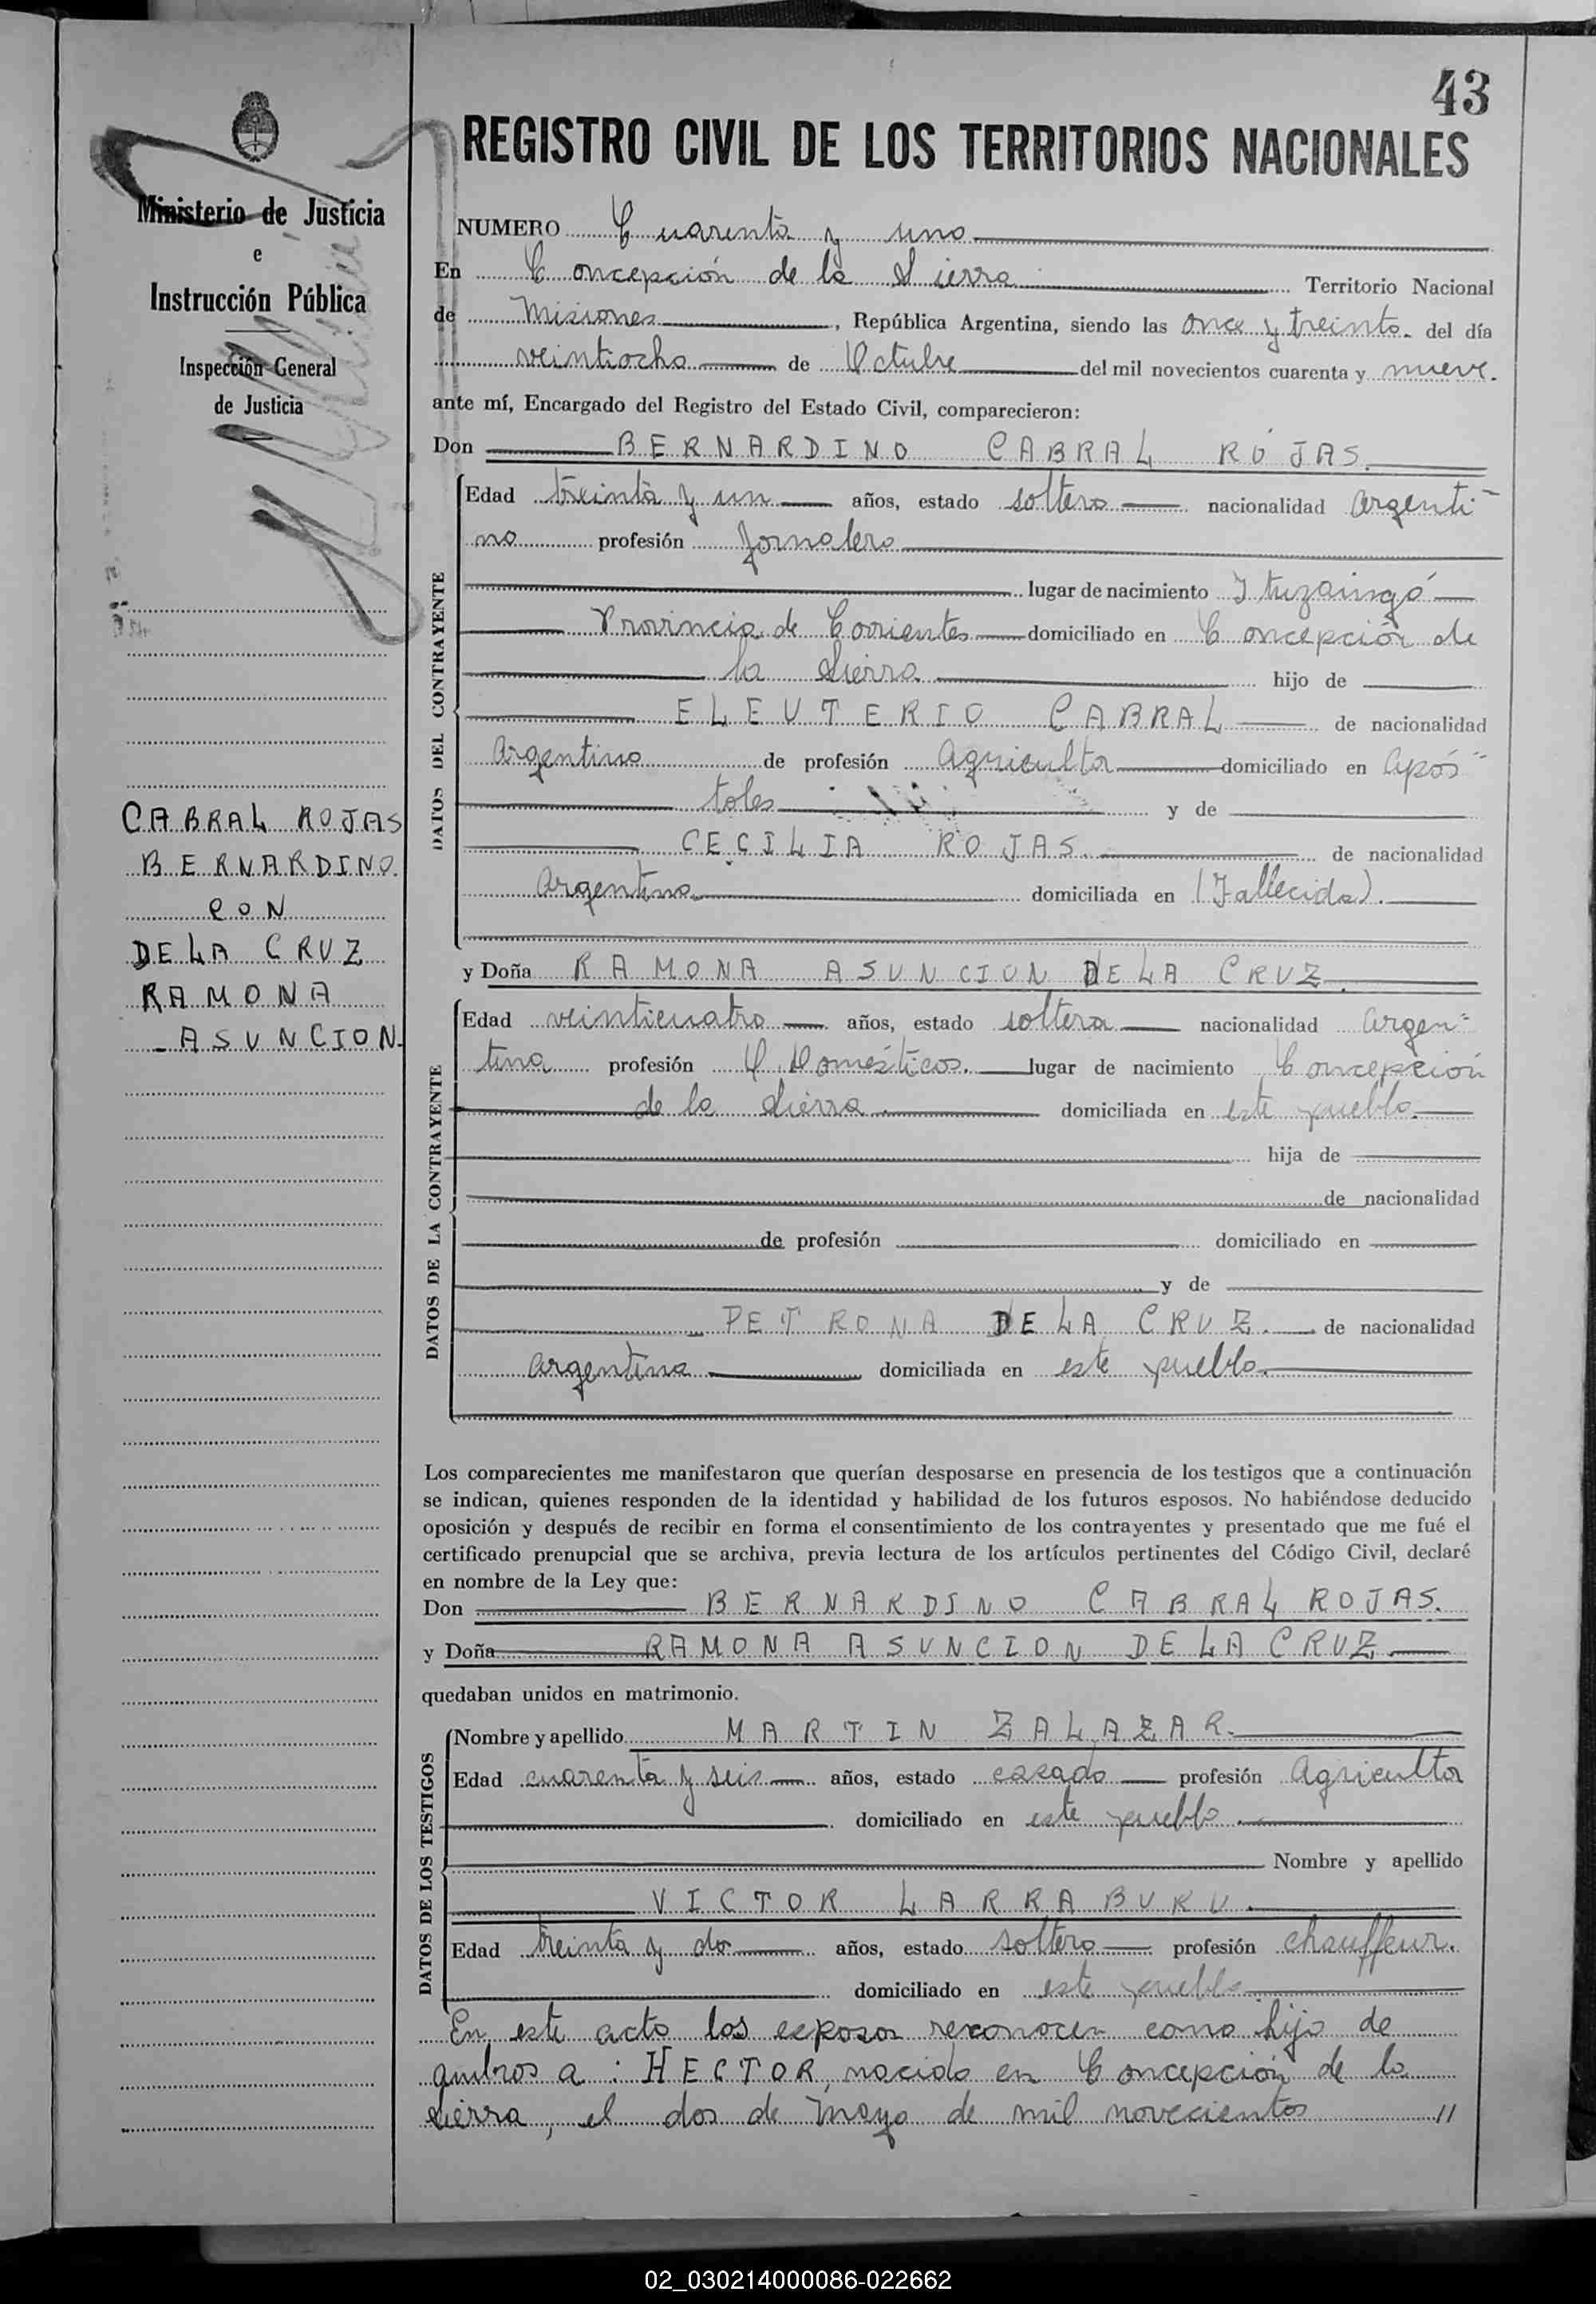 43
REGISTRO CIVIL DE LOS TERRITORIOS NACIONALES
Ministerio de Justicia
e
Instrucción Pública
Inspección General
de Justicia
CABRAL ROJAS
BERNARDINO.
CON
DE LA CRUZ
RAMONA
ASUNCION
NUMERO Cuarenta y uno
En Concepción de la Sierra Territorio Nacional
de Misiones, República Argentina, siendo las once y treinta del día
veintiocho de Octubre del mil novecientos cuarenta y nueve.
ante mí, Encargado del Registro del Estado Civil, comparecieron:
Don BERNARDINO CABRAL ROJAS.
DATOS DEL CONTRAYENTE
Edad treinta y un años, estado soltero nacionalidad argenti-
no profesión Jornalero
lugar de nacimiento Ituzaingó
Provincia de Corrientes domiciliado en Concepción de
la Sierra hijo de
ELEUTERIO CABRAL de nacionalidad
Argentino de profesión Agricultor domiciliado en Após-
toles y de
CECILIA ROJAS. de nacionalidad
Argentina domiciliada en (Fallecida).
y Doña RAMONA ASUNCION DE LA CRUZ.
DATOS DE LA CONTRAYENTE
Edad veinticuatro años, estado soltera nacionalidad argen-
tina profesión Q. Domésticos. lugar de nacimiento Concepción
de la Sierra. domiciliada en este pueblo.
hija de
de nacionalidad
de profesión domiciliado en
y de
PETRONA DE LA CRUZ. de nacionalidad
argentina domiciliada en este pueblo.
Los comparecientes me manifestaron que querían desposarse en presencia de los testigos que a continuación
se indican, quienes responden de la identidad y habilidad de los futuros esposos. No habiéndose deducido
oposición y después de recibir en forma el consentimiento de los contrayentes y presentado que me fué el
certificado prenupcial que se archiva, previa lectura de los artículos pertinentes del Código Civil, declaré
en nombre de la Ley que:
Don BERNARDINO CABRAL ROJAS.
y Doña RAMONA ASUNCION DE LA CRUZ.
quedaban unidos en matrimonio.
DATOS DE LOS TESTIGOS
Nombre y apellido MARTIN ZALAZAR.
Edad cuarenta y seis años, estado casado profesión Agricultor
domiciliado en este pueblo.
Nombre y apellido
VICTOR LARRABURU.
Edad treinta y do años, estado soltero profesión chauffeur.
domiciliado en este pueblo
En este acto los esposos reconocen como hijo de
ambos a : HECTOR, nacido en Concepción de la
Sierra, el dos de Mayo de mil novecientos //
02_030214000086-022662